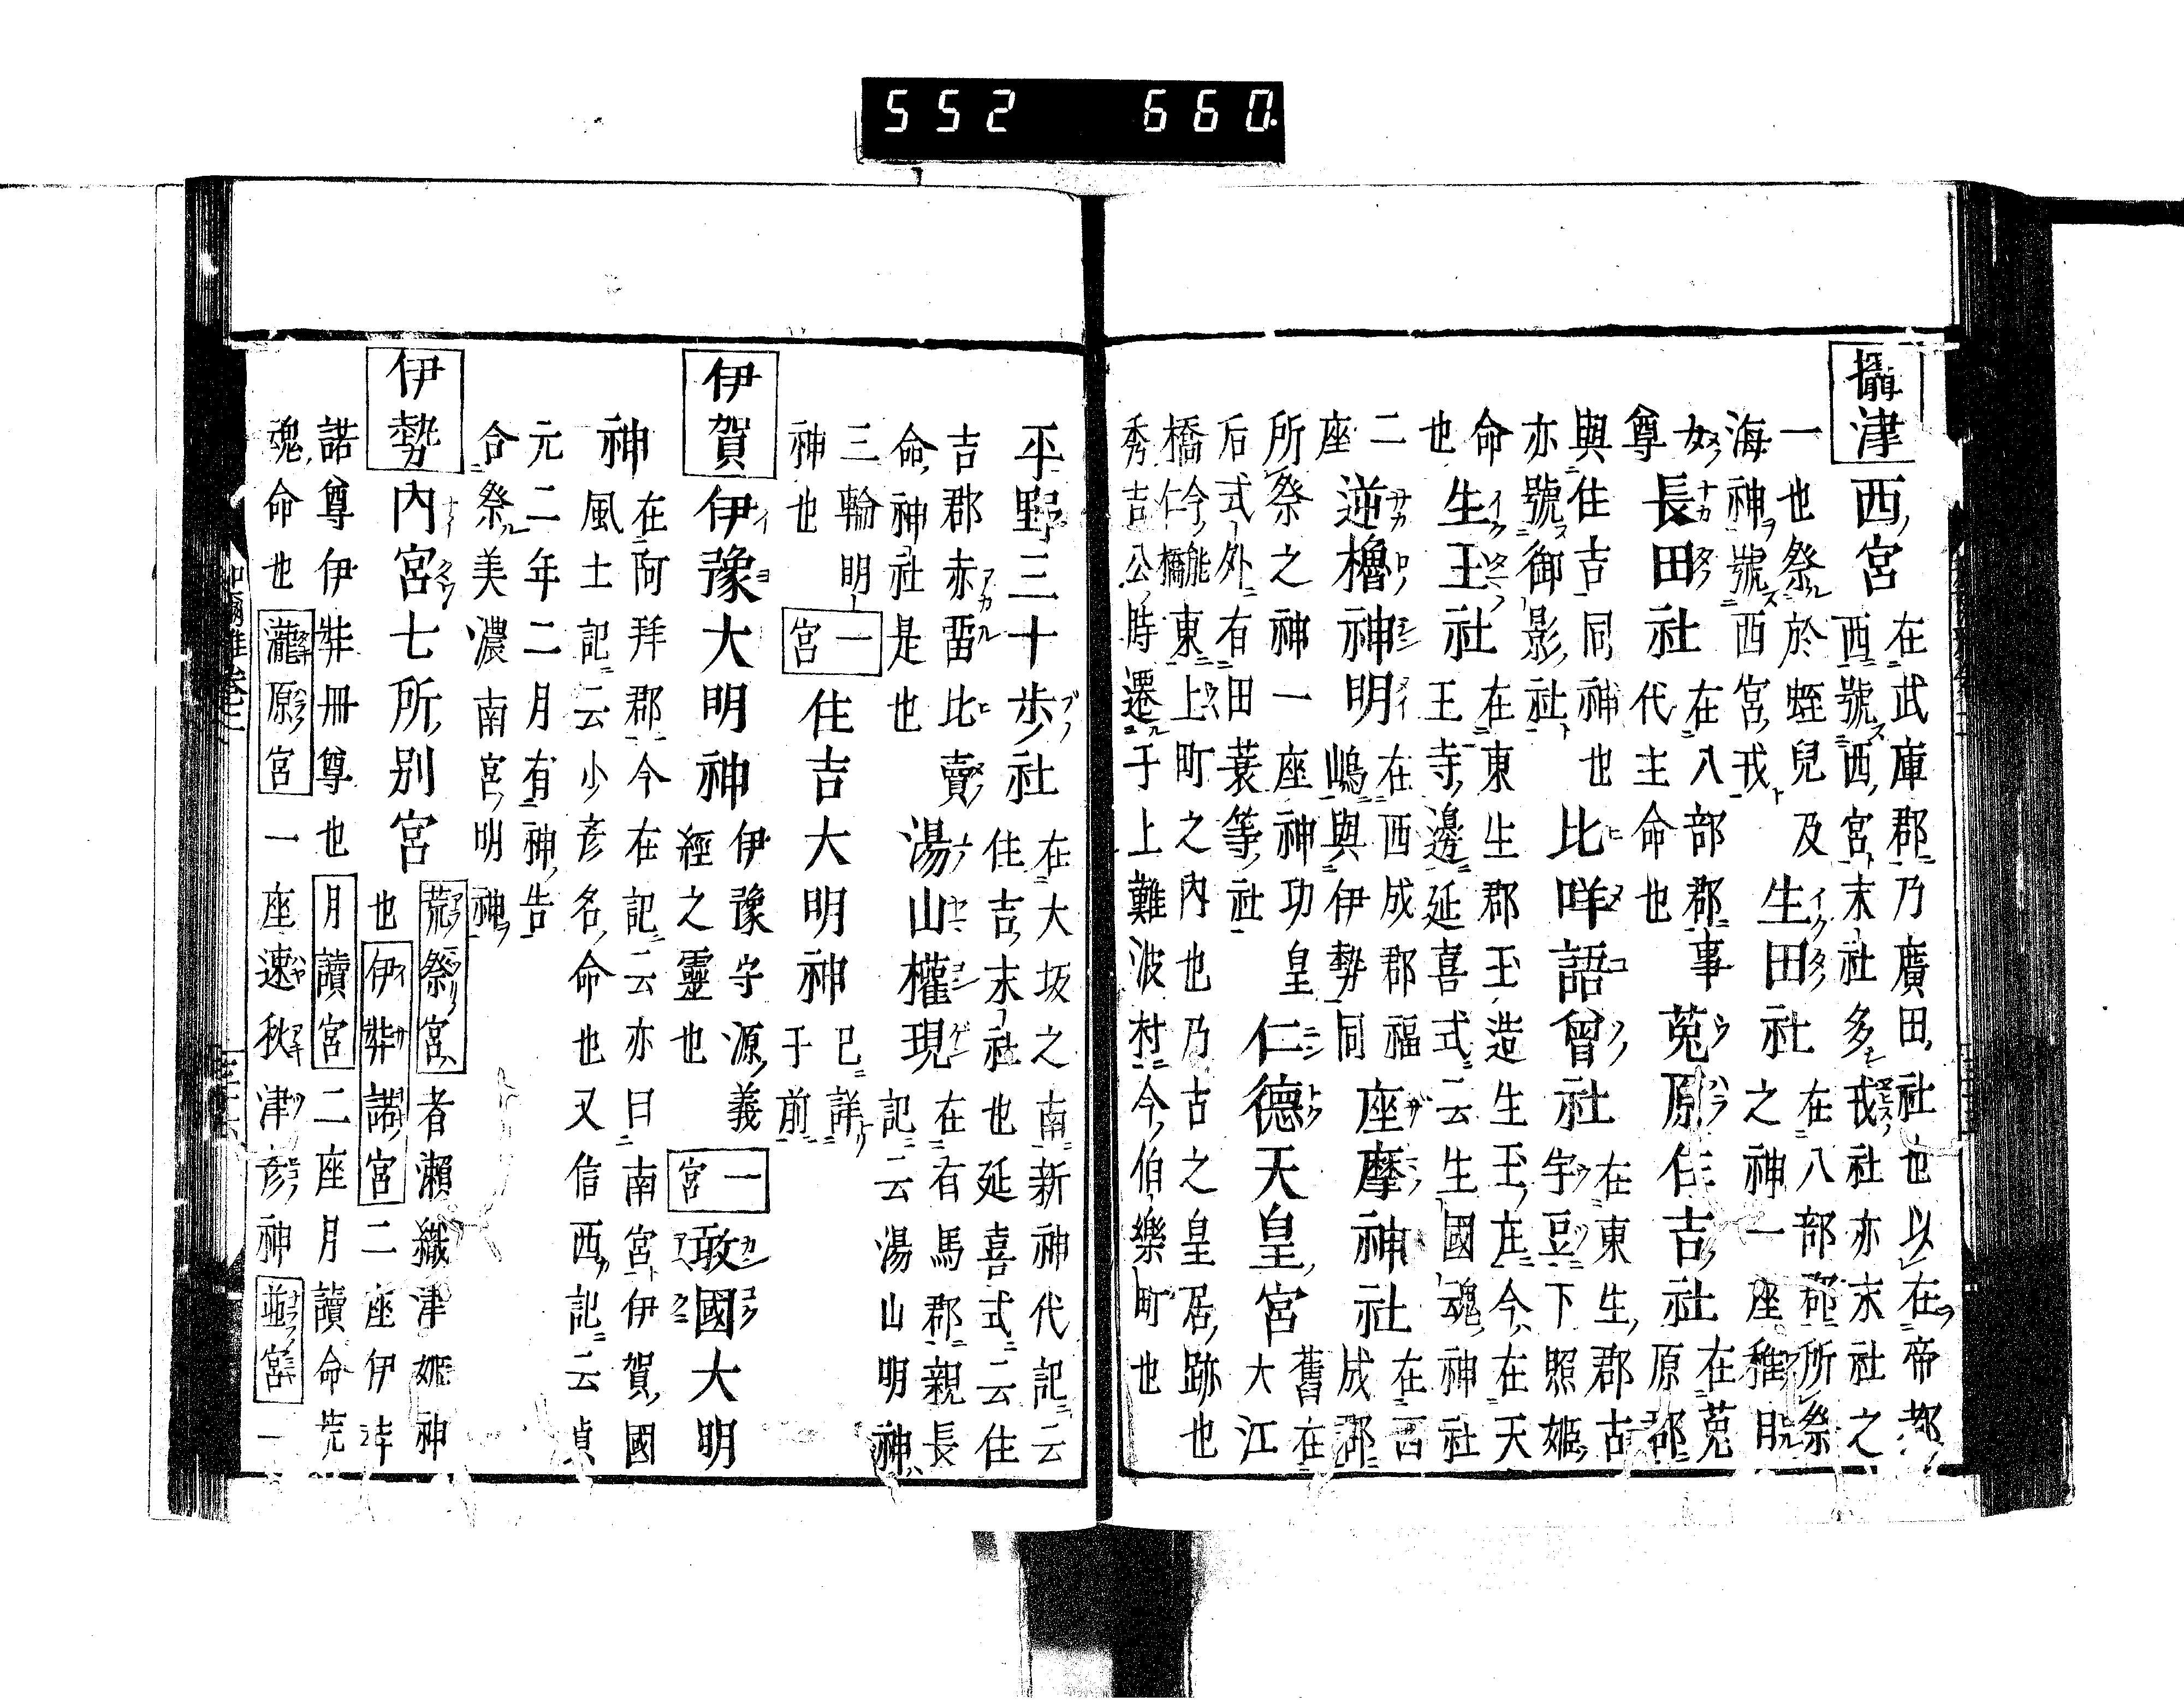 攝津 西宮 在武庫郡乃廣田社也以在帝都
西號西宮末社多戎社亦末社之
一也祭於蛭兒及
海神號西宮戎 生田社 在八部郡所祭
之神一座稚日
女
尊 長田社 在八部郡事
代主命也 菟原住吉社 在菟
原郡
與住吉同神也
亦號御影社 比咩語曾社 在東生郡古
宇豆下照姬
命
也 生玉社 在東生郡玉造生玉庄今在天
王寺邊延喜式云生國魂神社
二
座 逆櫓神明 在西成郡福
嶋與伊勢同 座摩神社 在西
成郡
所祭之神一座神功皇
后式外有田蓑等社 仁德天皇宮 舊在
大江
橋今能仁橋東上町之內也乃古之皇居跡也
秀吉公時遷于上難波村今伯樂町也
平野三十步社 在大坂之南新神代記云
住吉末社也延喜式云住
吉郡赤畱比賣
命神社是也 湯山權現 在有馬郡親長
記云湯山明神
三輪明
神也 一宮 住吉大明神 已詳
于前
伊賀 伊豫大明神 伊豫守源義
經之靈也 一宮 敢國大明
神 在阿拜郡今在記云亦曰南宮伊賀國
風土記云少彦名命也又信西記云貞
元二年二月有神告
合祭美濃南宮明神
伊勢 內宮七所別宮 荒祭宮者瀨織津姬神
也伊弉諾宮二座伊弉
諾尊伊弉冊尊也月讀宮二座月讀命荒
魂命也瀧原宮一座速秋津彥神並宮一
552 660